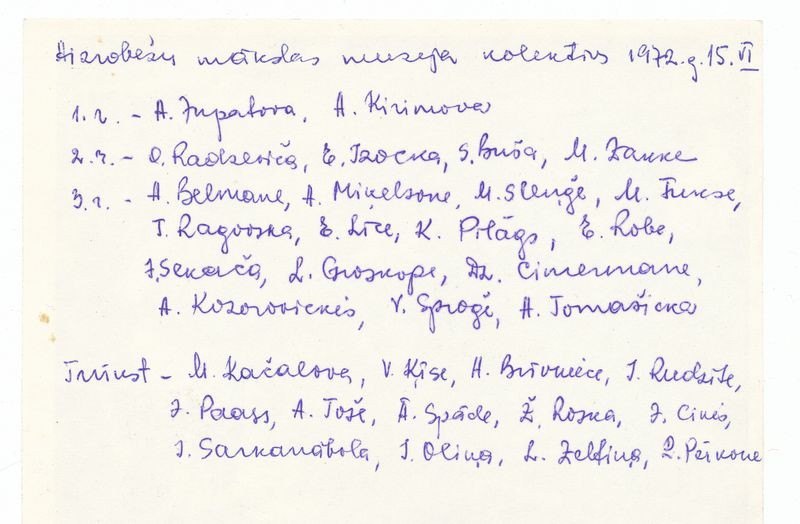 Aizrobežu mākslas muzeja kolektīvs 1972.g. 15. VI
1. r. - A. Zupatova, A. Kirimova
2. r. - O. Radzeviča, E. Izocka, S. Buša, M. Zanke
3. r. - A. Belmane, A. Miķelsone, M. Sleņģe, M. Fukse,
T. Ragovska, E. Līce, K. Pilāgs, E. Robe,
J. Sekača, L. Groskope, Dz. Cimermane,
A. Kozorovickis, V. Sproģe, A. Tomašicka
Trūkst - M. Kačalova, V. Ķise, H. Brīvniece, I. Rudzīte,
J. Paass, A. Toše, Ā. Spāde, Ž. Roska, J. Cinis,
I. Sarkanābola, I. Oliņa, L. Zeltiņa, P. Pērkone